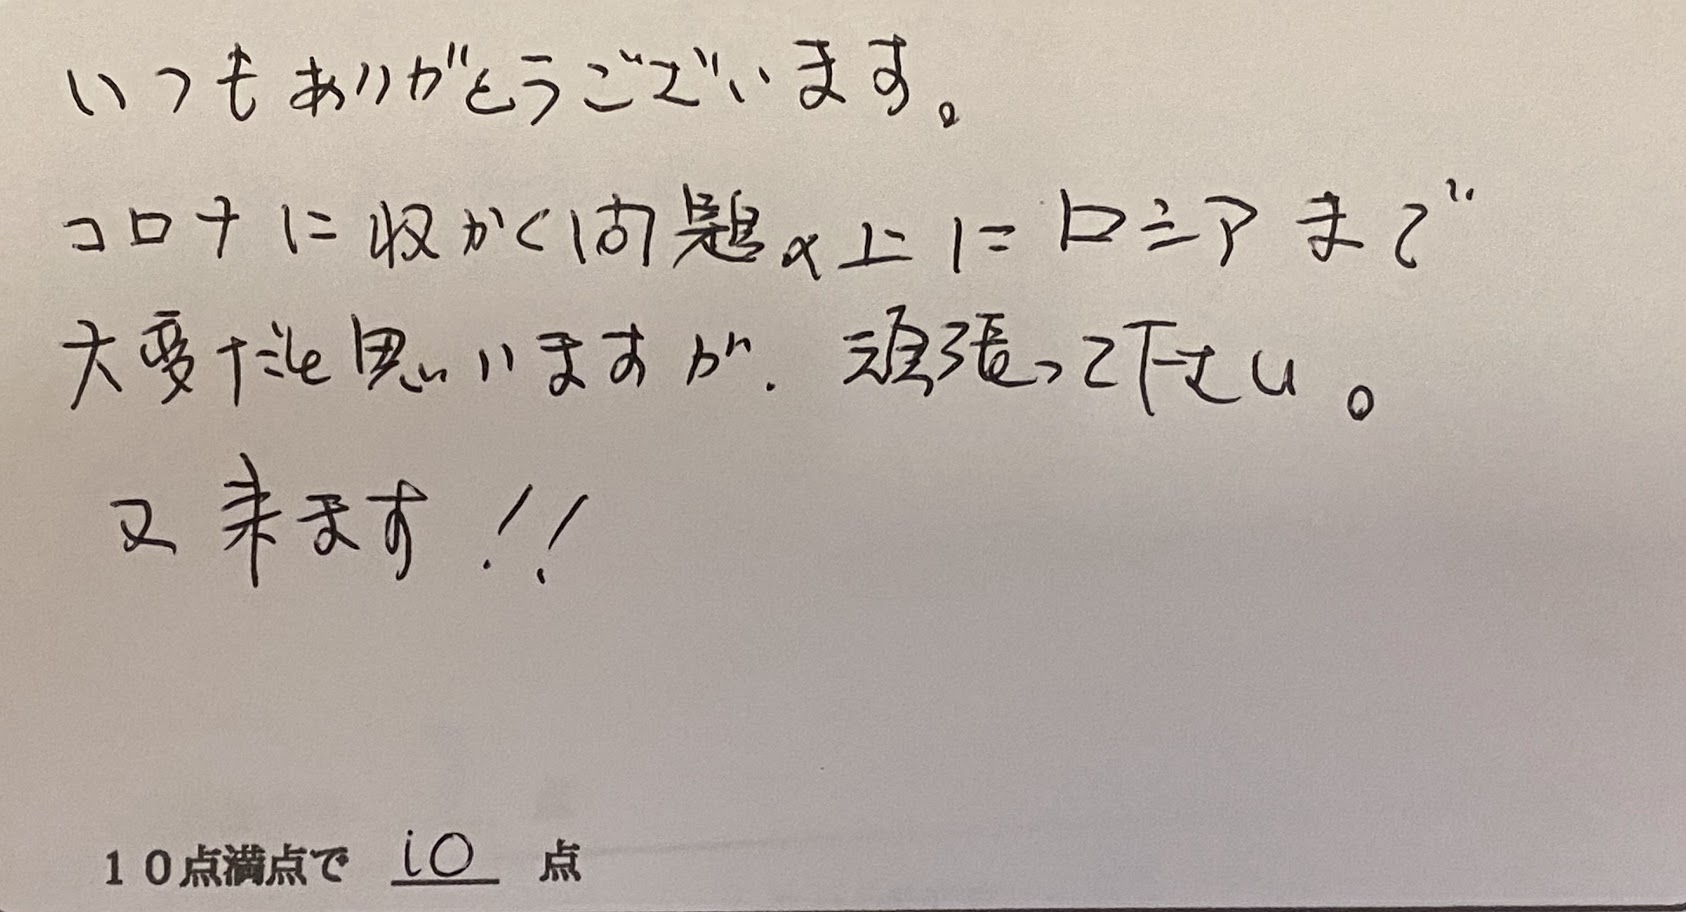 いつもありがとうございます。
コロナに収かく問題の上にロシアまで
大変だと思いますが、頑張って下さい。
又来ます!!
10点満点で 10 点